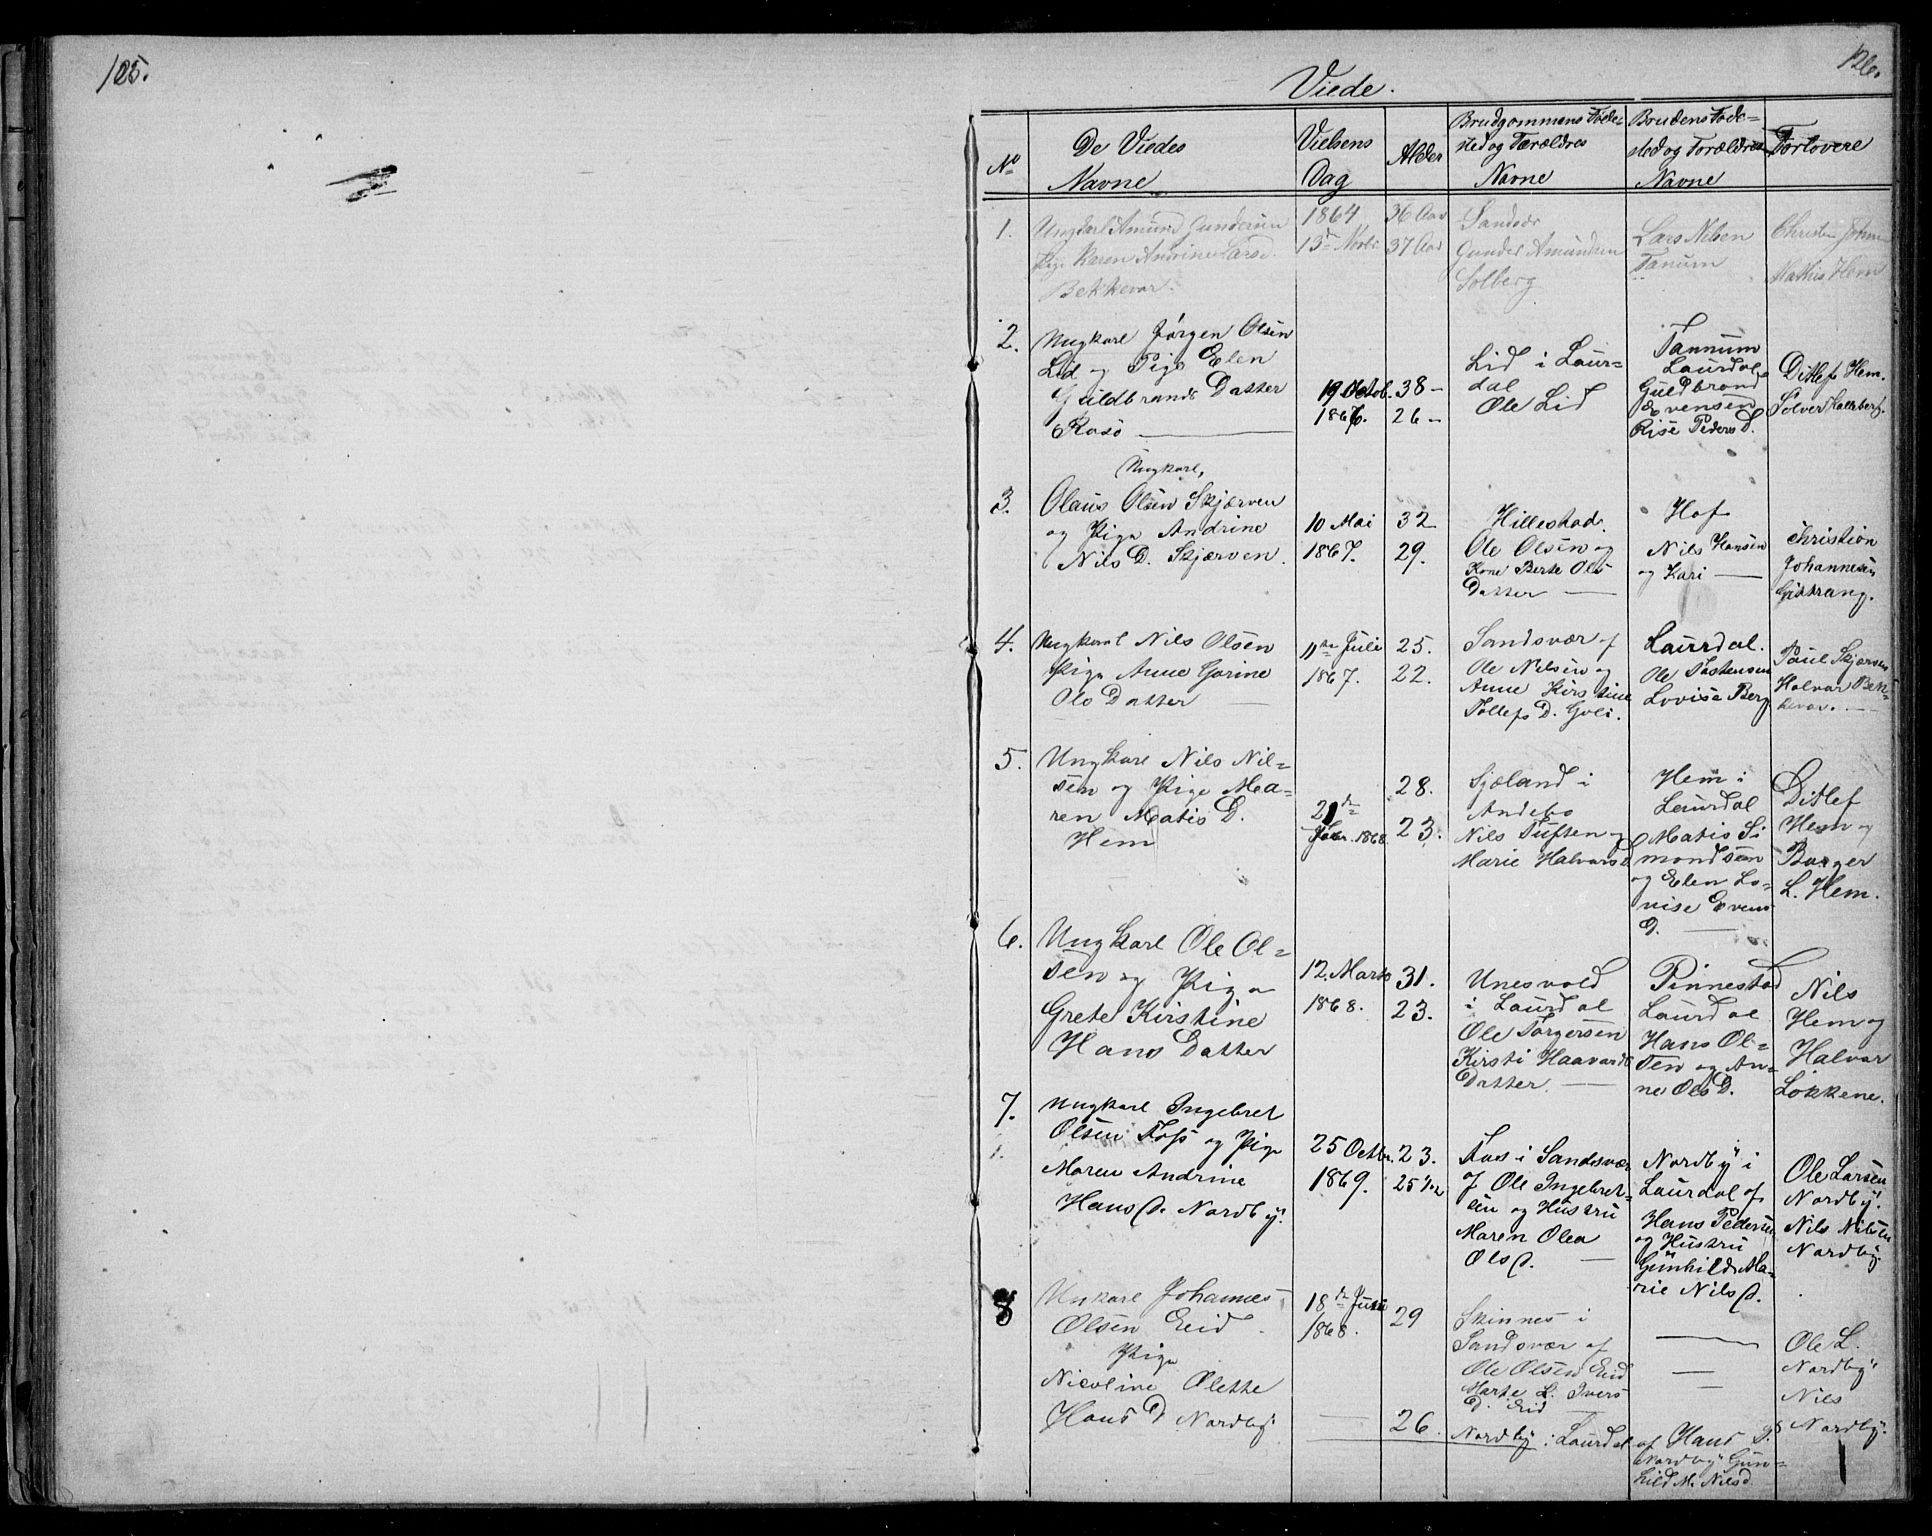 125.
126.
Viede.
No
De Viedes Navne
Vielsens Dag
Alder
Brudgommens Føde-
sted og Forældres
Navne
Brudens Føde-
sted og Forældres
Navne
Forlovere
1.
Ungkarl Amund Gundersen
Pige Karen Andrine Larsd.
Bekkevar.
1864
13de Novbr.
36 Aar
37 Aar
Sandsvær
Gunder Amundsen
Solberg
Lars Nilsen
Tanum
Mathis Hem
2.
Ungkarl Jørgen Olsen
Lid og Pige Elen
Guldbrands Datter
19 Octob.
1866.
38 —
26 —
Lid i Laur-
dal
Ole Lid
Tannum
Laurdal
Guldbrand
Evensen
Rise Peders D.
Ditlef Hem.
3.
Ungkarl,
Olaus Olsen Skjærven
og Pige Andrine
Nils D. Skjærven.
10 Mai
1867.
32
29.
Hillestad.
Ole Olsen og
Kone Berte Ols
Datter —
Hof
Nils Hansen
og Kari —
Christian
Johannesen
4.
Ungkarl Nils Olsen
Pige Anne Gorine
Ols Datter —
11te Juli
1867.
25.
22.
Sandsvær af
Ole Nilsen og
Anne Kirstine
Tollefs D.
Laurdal.
Ole
Lovise Berg
Paul Skjærven
Halvar Bek-
kevar. —
5.
Ungkarl Nils Nil-
sen og Pige Ma-
ren Matis D.
Hem
1868
28.
23.
Sjæland i
Andebo
Nils Tuften og
Marie Halvars D.
Hem i
Laurdal
Matis Si
mondsen
og Elen Lo-
vise Evens
D. —
Ditlef
Hem og
L. Hem.
6.
Ungkarl Ole Ol-
sen og Pige
Grete Kirstine
Hans Datter
12. Marts
1868.
31.
23.
Unesvold
i Laurdal
Ole Torgersen
Kirsti Haavards
Datter —
Pinnestad
Laurdal
Hans Ol-
sen og An-
ne Ols D.
Nils
Hem og
Halvar
Løkkene.
7.
Ungkarl Ingebret
Olsen Foss og Pige
Maren Andrine
Hans D. Nordby.
25 Octbr.
1869.
23.
25 1/2
Fos i Sandsvær
af Ole Ingebret-
sen og Hustru
Maren Olea
Ols D. —
Nordby i
Laurdal af
Hans Pedersen
og Hustru
Gunhild Ma-
rie Nils D.
Ole Larsen
Nordby.
Nils Nilsen
Nordby
8
Unkarl Johannes
Olsen Eid
Pige
Nicoline Olette
Hans D Nordby
18de Juni
1868.
29
26
Skinnes i
Sandsvær af
Ole Olsen Eid
Marte L. Ivers
D. Eid
Nordby i Laurdal af Hans P.
Nordby Gun-
hild M. Nilsd
Ole L.
Nordby
Nils
Nordby.